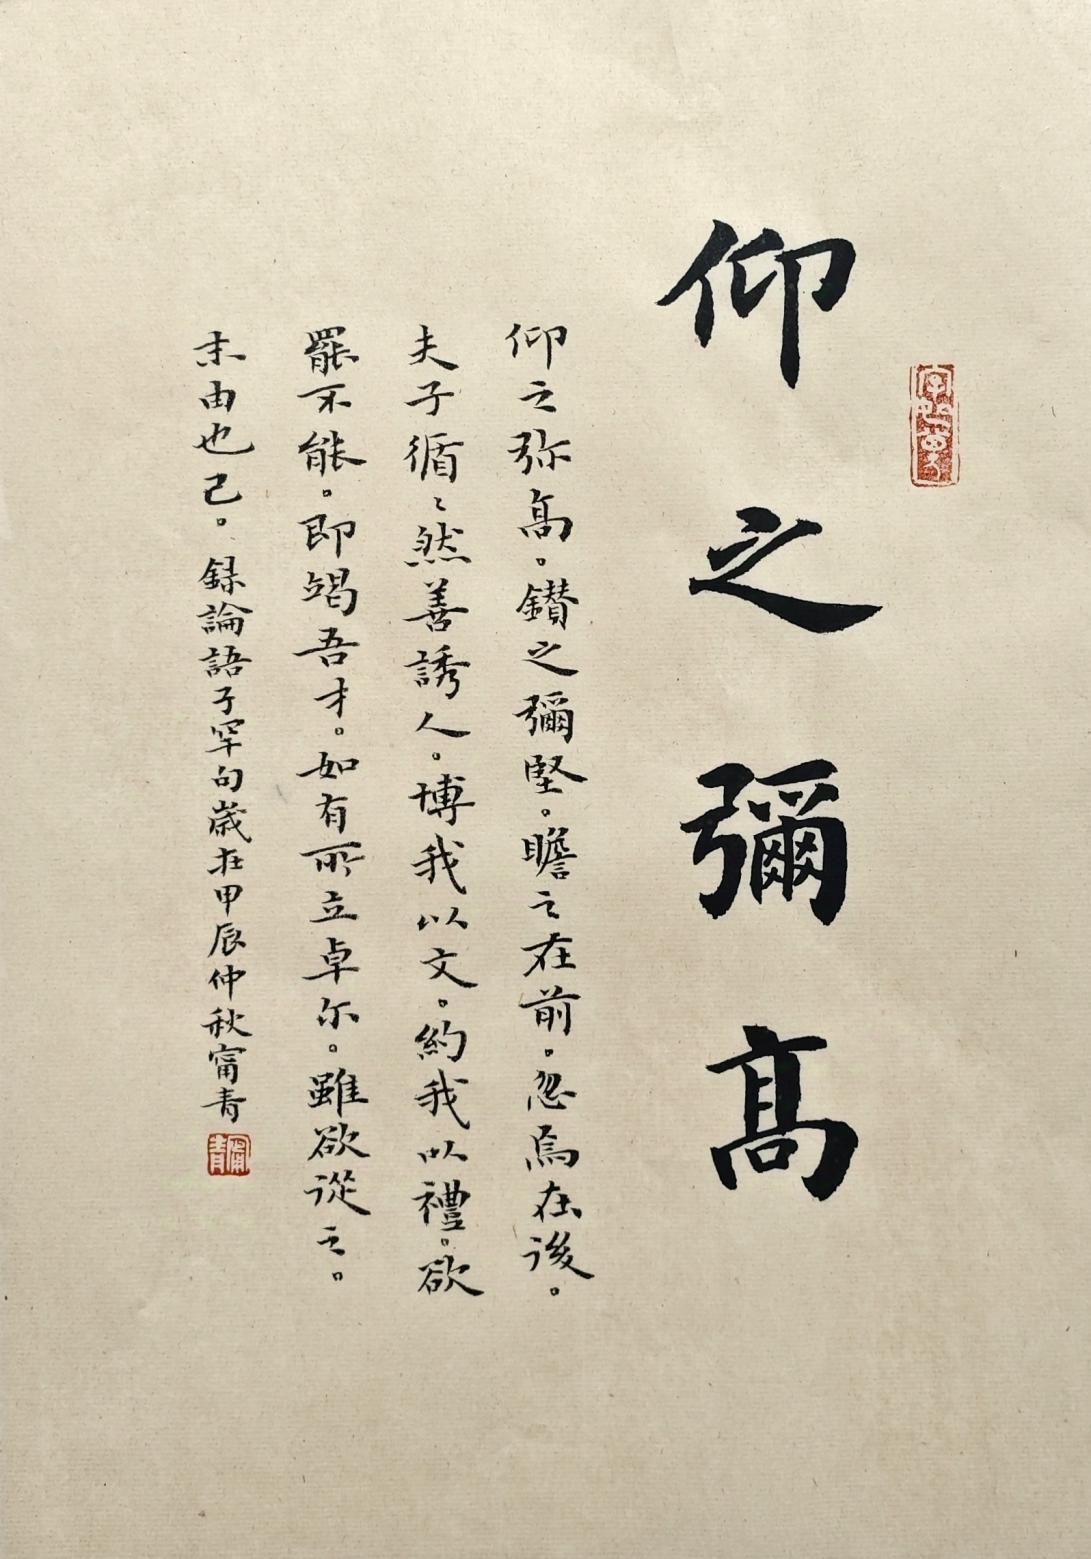 仰之彌高
仰之弥高。鑚之彌堅。瞻之在前。忽焉在後。
夫子循〻然善誘人。博我以文。約我以禮。欲
罷不能。即竭吾才。如有所立卓尔。雖欲從之。
末由也已。錄論語子罕句歲在甲辰仲秋甯青
甯青